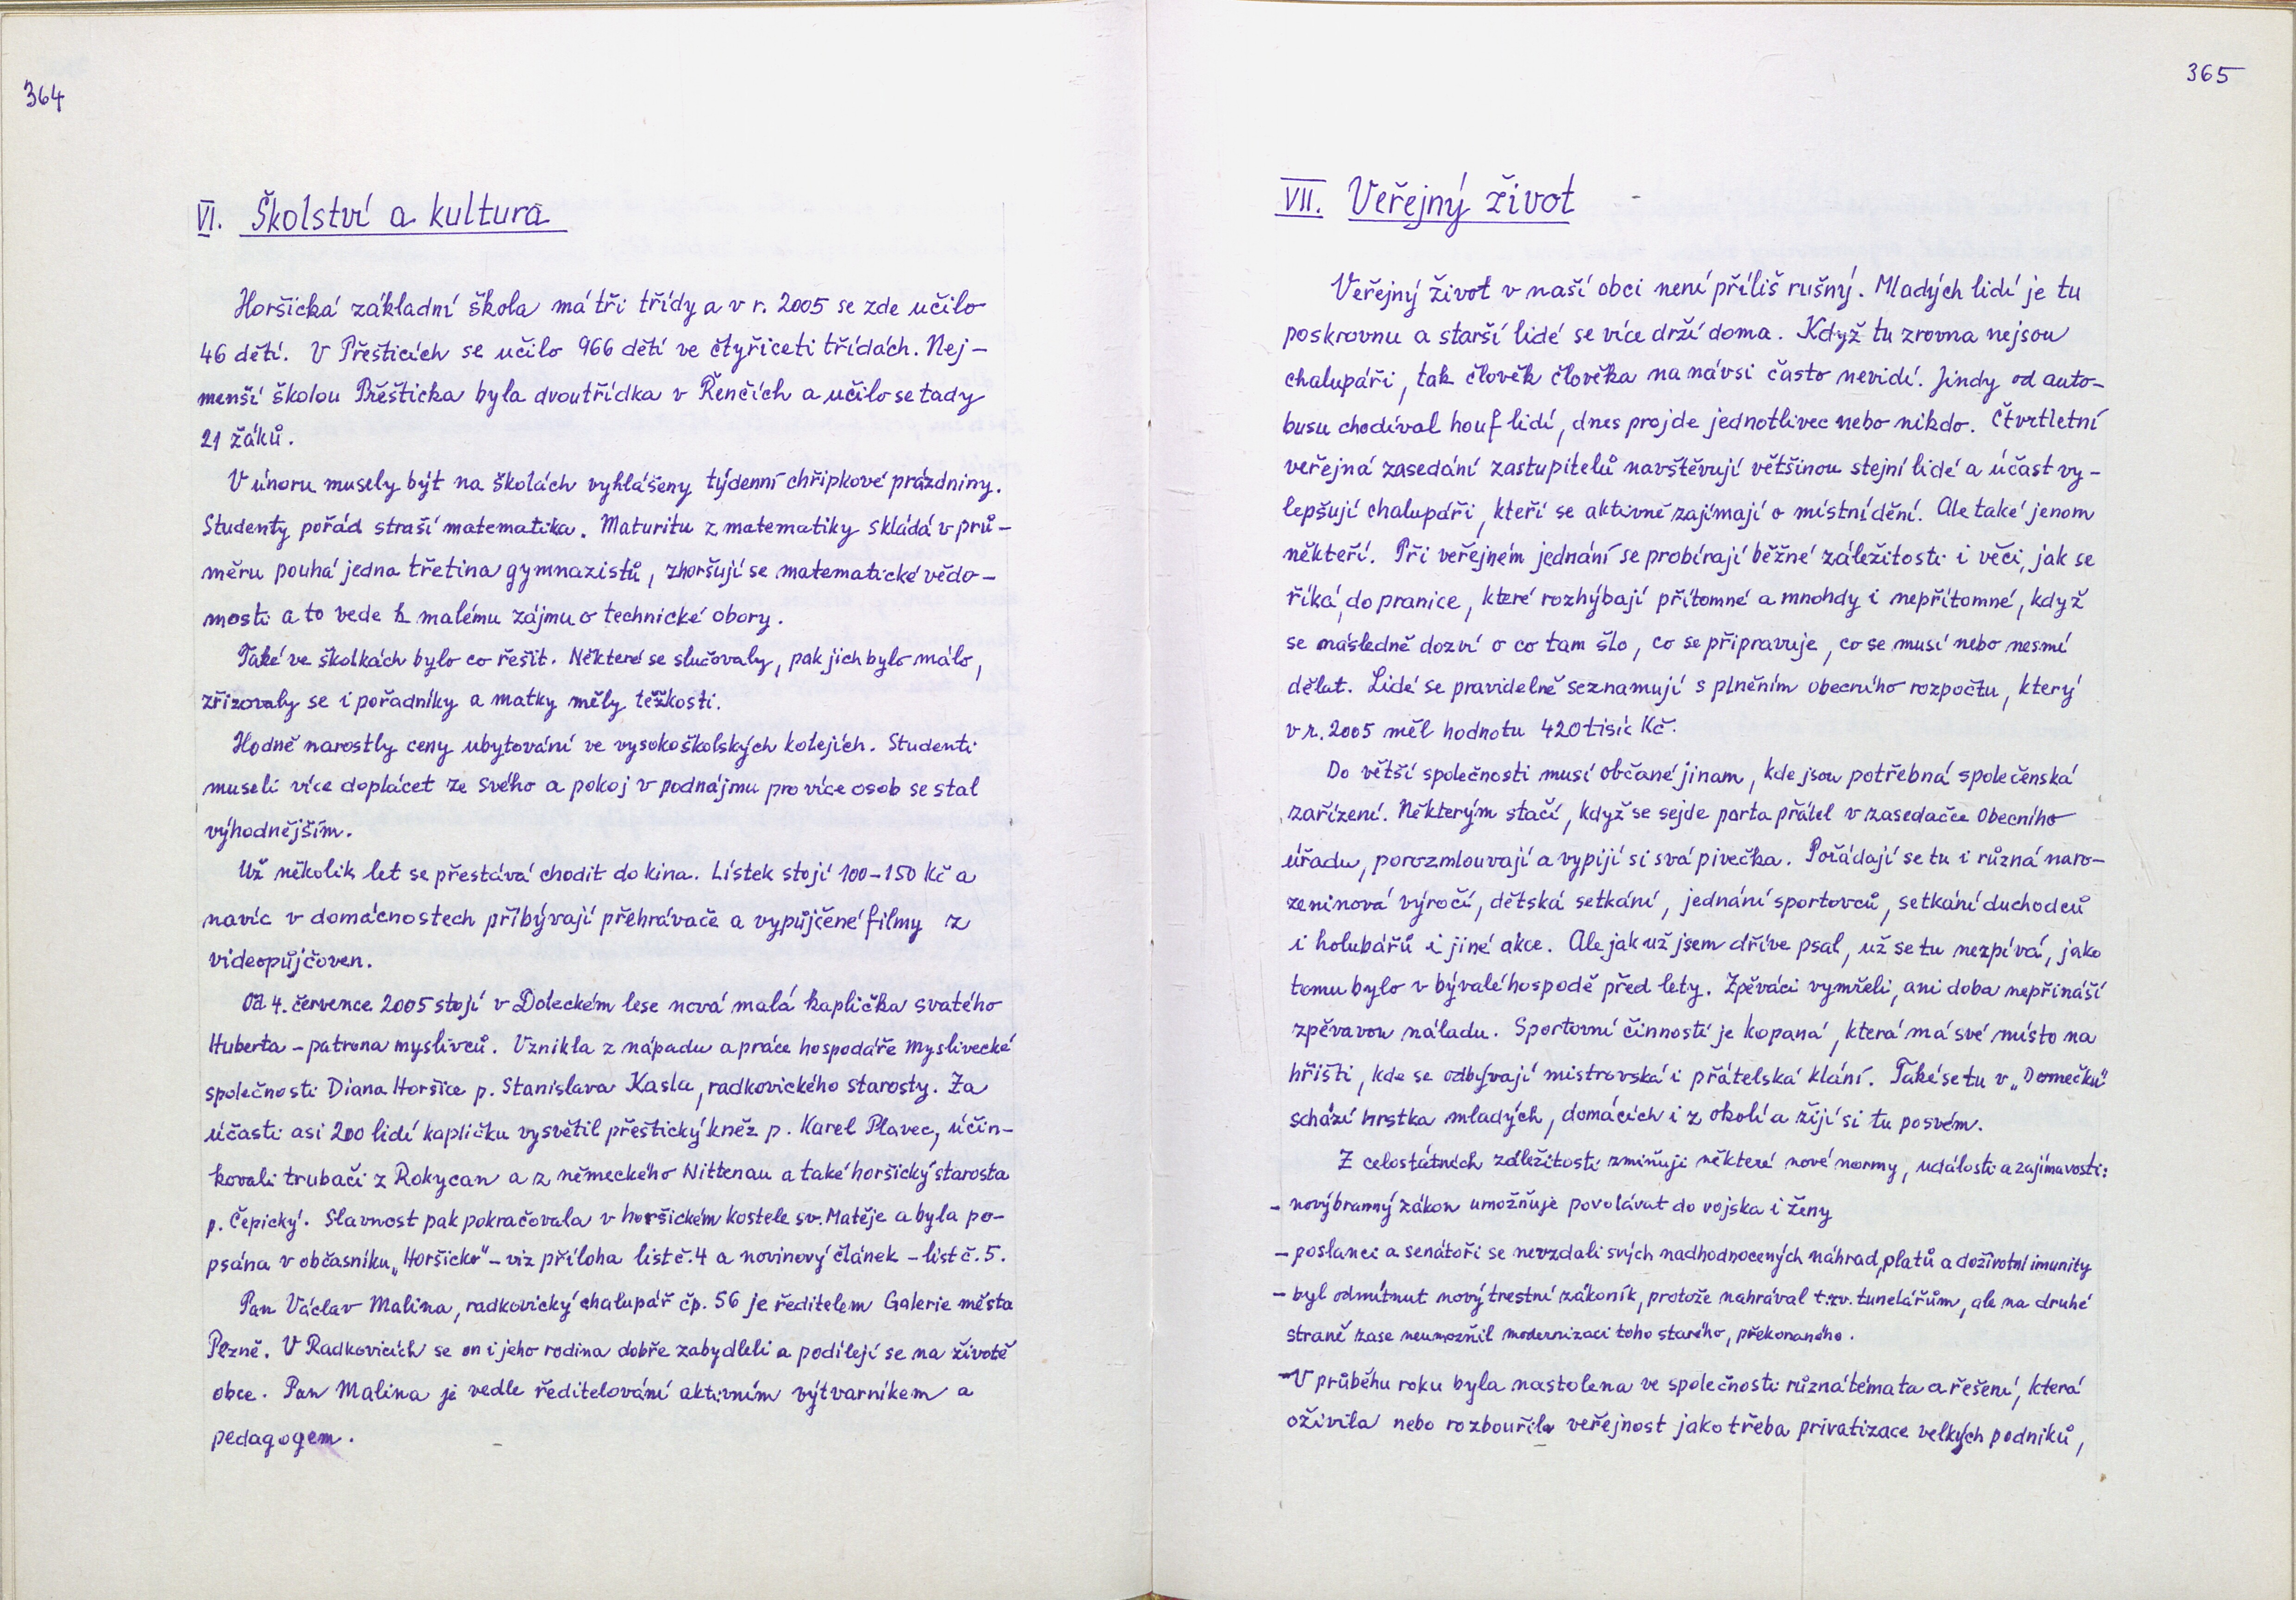 364
VI. Školství a kultura
Horšická základní škola má tři třídy a v r. 2005 se zde učilo
46 dětí. V Přešticích se učilo 966 dětí ve čtyřiceti třídách. Nej-
menší školou Přešticka byla dvoutřídka v Řenčích a učilo se tady
21 žáků.
V únoru musely být na školách vyhlášeny týdenní chřipkové prázdniny.
Studenty pořád straší matematika. Maturitu z matematiky skládá v prů-
měru pouhá jedna třetina gymnazistů, zhoršují se matematické vědo-
mosti a to vede k malému zájmu o technické obory.
Také ve školkách bylo co řešit. Některé se slučovaly, pak jich bylo málo,
zřizovaly se i pořadníky a matky měly těžkosti.
Hodně narostly ceny ubytování ve vysokoškolských kolejích. Studenti
museli více doplácet ze svého a pokoj v podnájmu pro více osob se stal
výhodnějším.
Už několik let se přestává chodit do kina. Lístek stojí 100-150 Kč a
navíc v domácnostech přibývají přehrávače a vypůjčené filmy z
videopůjčoven.
Od 4. července 2005 stojí v Doleckém lese nová malá kaplička svatého
Huberta - patrona myslivců. Vznikla z nápadu a práce hospodáře Myslivecké
společnosti Diana Horšice p. Stanislava Kasla, radkovického starosty. Za
účasti asi 200 lidí kapličku vysvětil přeštický kněz p. Karel Plavec, účin-
kovali trubači z Rokycan a z německého Nittenau a také horšický starosta
p. Čepický. Slavnost pak pokračovala v horšickém kostele sv. Matěje a byla po-
psána v občasníku „Horšicko" - viz příloha list č. 4 a novinový článek - list č. 5.
Pan Václav Malina, radkovický chalupář čp. 56 je ředitelem Galerie města
Plzně. V Radkovicích se on i jeho rodina dobře zabydleli a podílejí se na životě
obce. Pan Malina je vedle ředitelování aktivním výtvarníkem a
pedagogem.
365
VII. Veřejný život
Veřejný život v naší obci není příliš rušný. Mladých lidí je tu
poskrovnu a starší lidé se více drží doma. Když tu zrovna nejsou
chalupáři, tak člověk člověka na návsi často nevidí. Jindy od auto-
busu chodíval houf lidí, dnes projde jednotlivec nebo nikdo. Čtvrtletní
veřejná zasedání zastupitelů navštěvují většinou stejní lidé a účast vy-
lepšují chalupáři, kteří se aktivně zajímají o místní dění. Ale také jenom
někteří. Při veřejném jednání se probírají běžné záležitosti i věci, jak se
říká, do pranice, které rozhýbají přítomné a mnohdy i nepřítomné, když
se následně dozví o co tam šlo, co se připravuje, co se musí nebo nesmí
dělat. Lidé se pravidelně seznamují s plněním obecního rozpočtu, který
v r. 2005 měl hodnotu 420 tisíc Kč.
Do větší společnosti musí občané jinam, kde jsou potřebná společenská
zařízení. Některým stačí, když se sejde parta přátel v zasedačce Obecního
úřadu, porozmlouvají a vypijí si svá pivečka. Pořádají se tu i různá naro-
zeninová výročí, dětská setkání, jednání sportovců, setkání duchodců
i holubářů i jiné akce. Ale jak už jsem dříve psal, už se tu nezpívá, jako
tomu bylo v bývalé hospodě před lety. Zpěváci vymřeli, ani doba nepřináší
zpěvavou náladu. Sportovní činností je kopaná, která má své místo na
hřišti, kde se odbývají mistrovská i přátelská klání. Také se tu v „Domečku"
schází hrstka mladých, domácích i z okolí a žijí si tu posvém.
Z celostátních záležitostí zmiňuji některé nové normy, události a zajímavosti:
- nový branný zákon umožňuje povolávat do vojska i ženy
- poslanci a senátoři se nevzdali svých nadhodnocených náhrad, platů a doživotní imunity
- byl odmítnut nový trestní zákoník, protože nahrával t.zv. tunelářům, ale na druhé
straně zase neumožnil modernizaci toho starého, překonaného.
- V průběhu roku byla nastolena ve společnosti různá témata a řešení, která
oživila nebo rozbouřila veřejnost jako třeba privatizace velkých podniků,